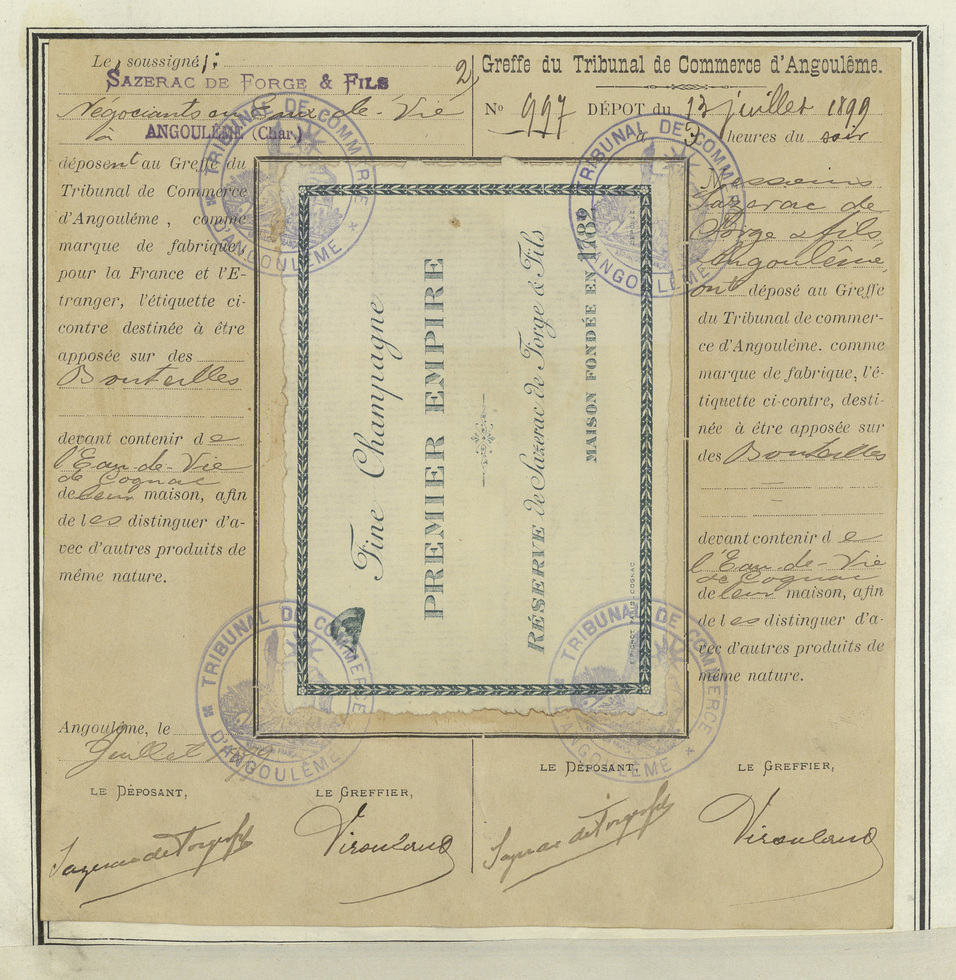 Le, soussigné,:
SAZERAC DE FORGE & FILS
Négociants en Eaux-de-Vie
à ANGOULÊME (Char.)
déposent au Greffe du
Tribunal de Commerce
d'Angoulême, comme
marque de fabrique,
pour la France et l'E-
tranger, l'étiquette ci-
contre destinée à être
apposée sur des
Bouteilles
devant contenir de
l'Eau-de-Vie
de Cognac
de leur maison, afin
de les distinguer d'a-
vec d'autres produits de
même nature.
Angoulême, le
Juillet
LE DÉPOSANT,
LE GREFFIER,
Sazerac de Forge & fils
Virouland
Fine Champagne
PREMIER EMPIRE
RÉSERVE de Sazerac de Forge & Fils
MAISON FONDÉE EN 1782
TRIBUNAL DE COMMERCE
D'ANGOULÊME
TRIBUNAL DE COMMERCE
D'ANGOULÊME
TRIBUNAL DE COMMERCE
D'ANGOULÊME
TRIBUNAL DE COMMERCE
D'ANGOULÊME
2
Greffe du Tribunal de Commerce d'Angoulême.
N° 997 DÉPOT du 13 juillet 1899
à 3 heures du soir
Messieurs
Sazerac de
Forge & fils
Angoulême,
ont déposé au Greffe
du Tribunal de commer-
ce d'Angoulême. comme
marque de fabrique, l'é-
tiquette ci-contre, desti-
née à être apposée sur
des Bouteilles
devant contenir de
l'Eau-de-Vie
de Cognac
de leur maison, afin
de les distinguer d'a-
vec d'autres produits de
même nature.
LE DÉPOSANT,
LE GREFFIER,
Sazerac de Forge & fils
Virouland